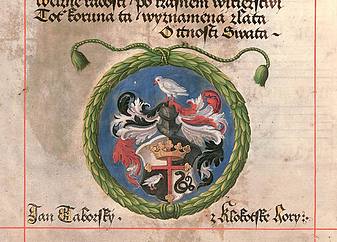 po
Toť koruna ta wyznamena zlata
Ctnosti Swata
Jan Taborsky
z Klokotske Hory